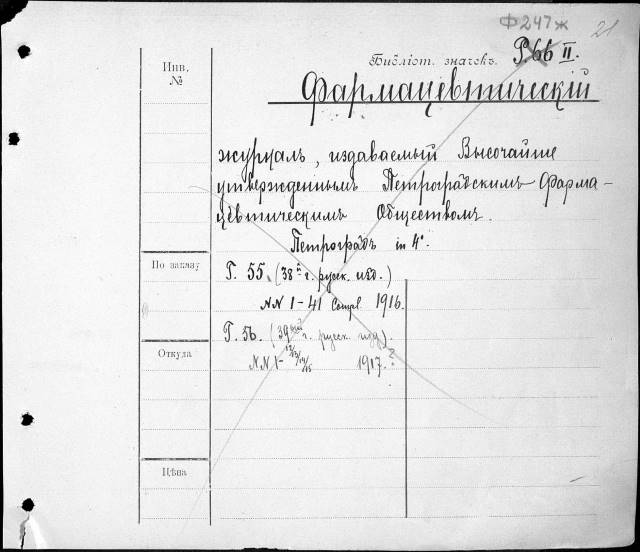 Ф 247ж
21
Библіот. значекъ. Р.66 II.
Инв. №
Фармацевтическій
журналъ, издаваемый Высочайше
утвержденнымъ Петроградскимъ Фарма-
цевтическимъ Обществомъ.
Петроградъ in 4°.
По заказу
Г. 55. (38й г. русск. изд.)
NN 1-41 Compl. 1916.
Г. 56. (39ый г. русск. изд.)
Откуда
NN 1-12/13/14/15 1917.?
Цѣна